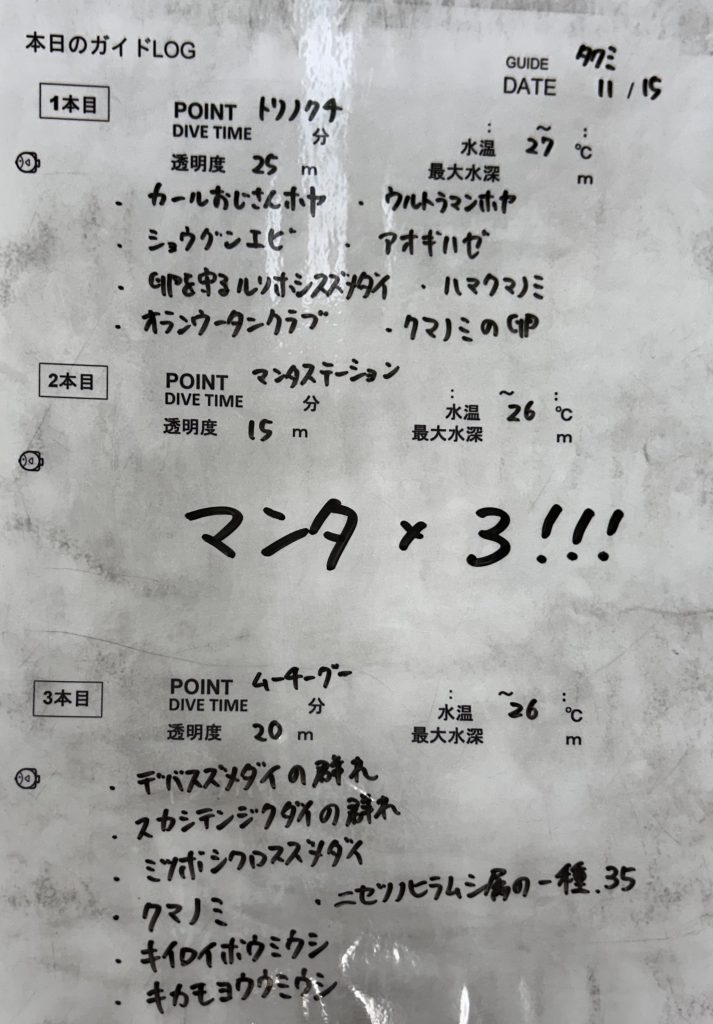 本日のガイドLOG
GUIDE タクミ
DATE 11 / 15
1本目 POINT トリノクチ
DIVE TIME 分 : ～ :
透明度 25 m 水温 27 ℃
最大水深 m
・カールおじさんホヤ ・ウルトラマンホヤ
・ショウグンエビ ・アオギハゼ
・GPを守るルリホシスズメダイ ・ハマクマノミ
・オランウータンクラブ ・クマノミのGP
2本目 POINT マンタステーション
DIVE TIME 分 : ～ :
透明度 15 m 水温 26 ℃
最大水深 m
マンタ × 3!!!
3本目 POINT ムーチーグー
DIVE TIME 分 : ～ :
透明度 20 m 水温 26 ℃
最大水深 m
・デバスズメダイの群れ
・スカシテンジクダイの群れ
・ミツボシクロスズメダイ
・クマノミ ・ニセツノヒラムシ属の一種.35
・キイロイボウミウシ
・キカモヨウウミウシ